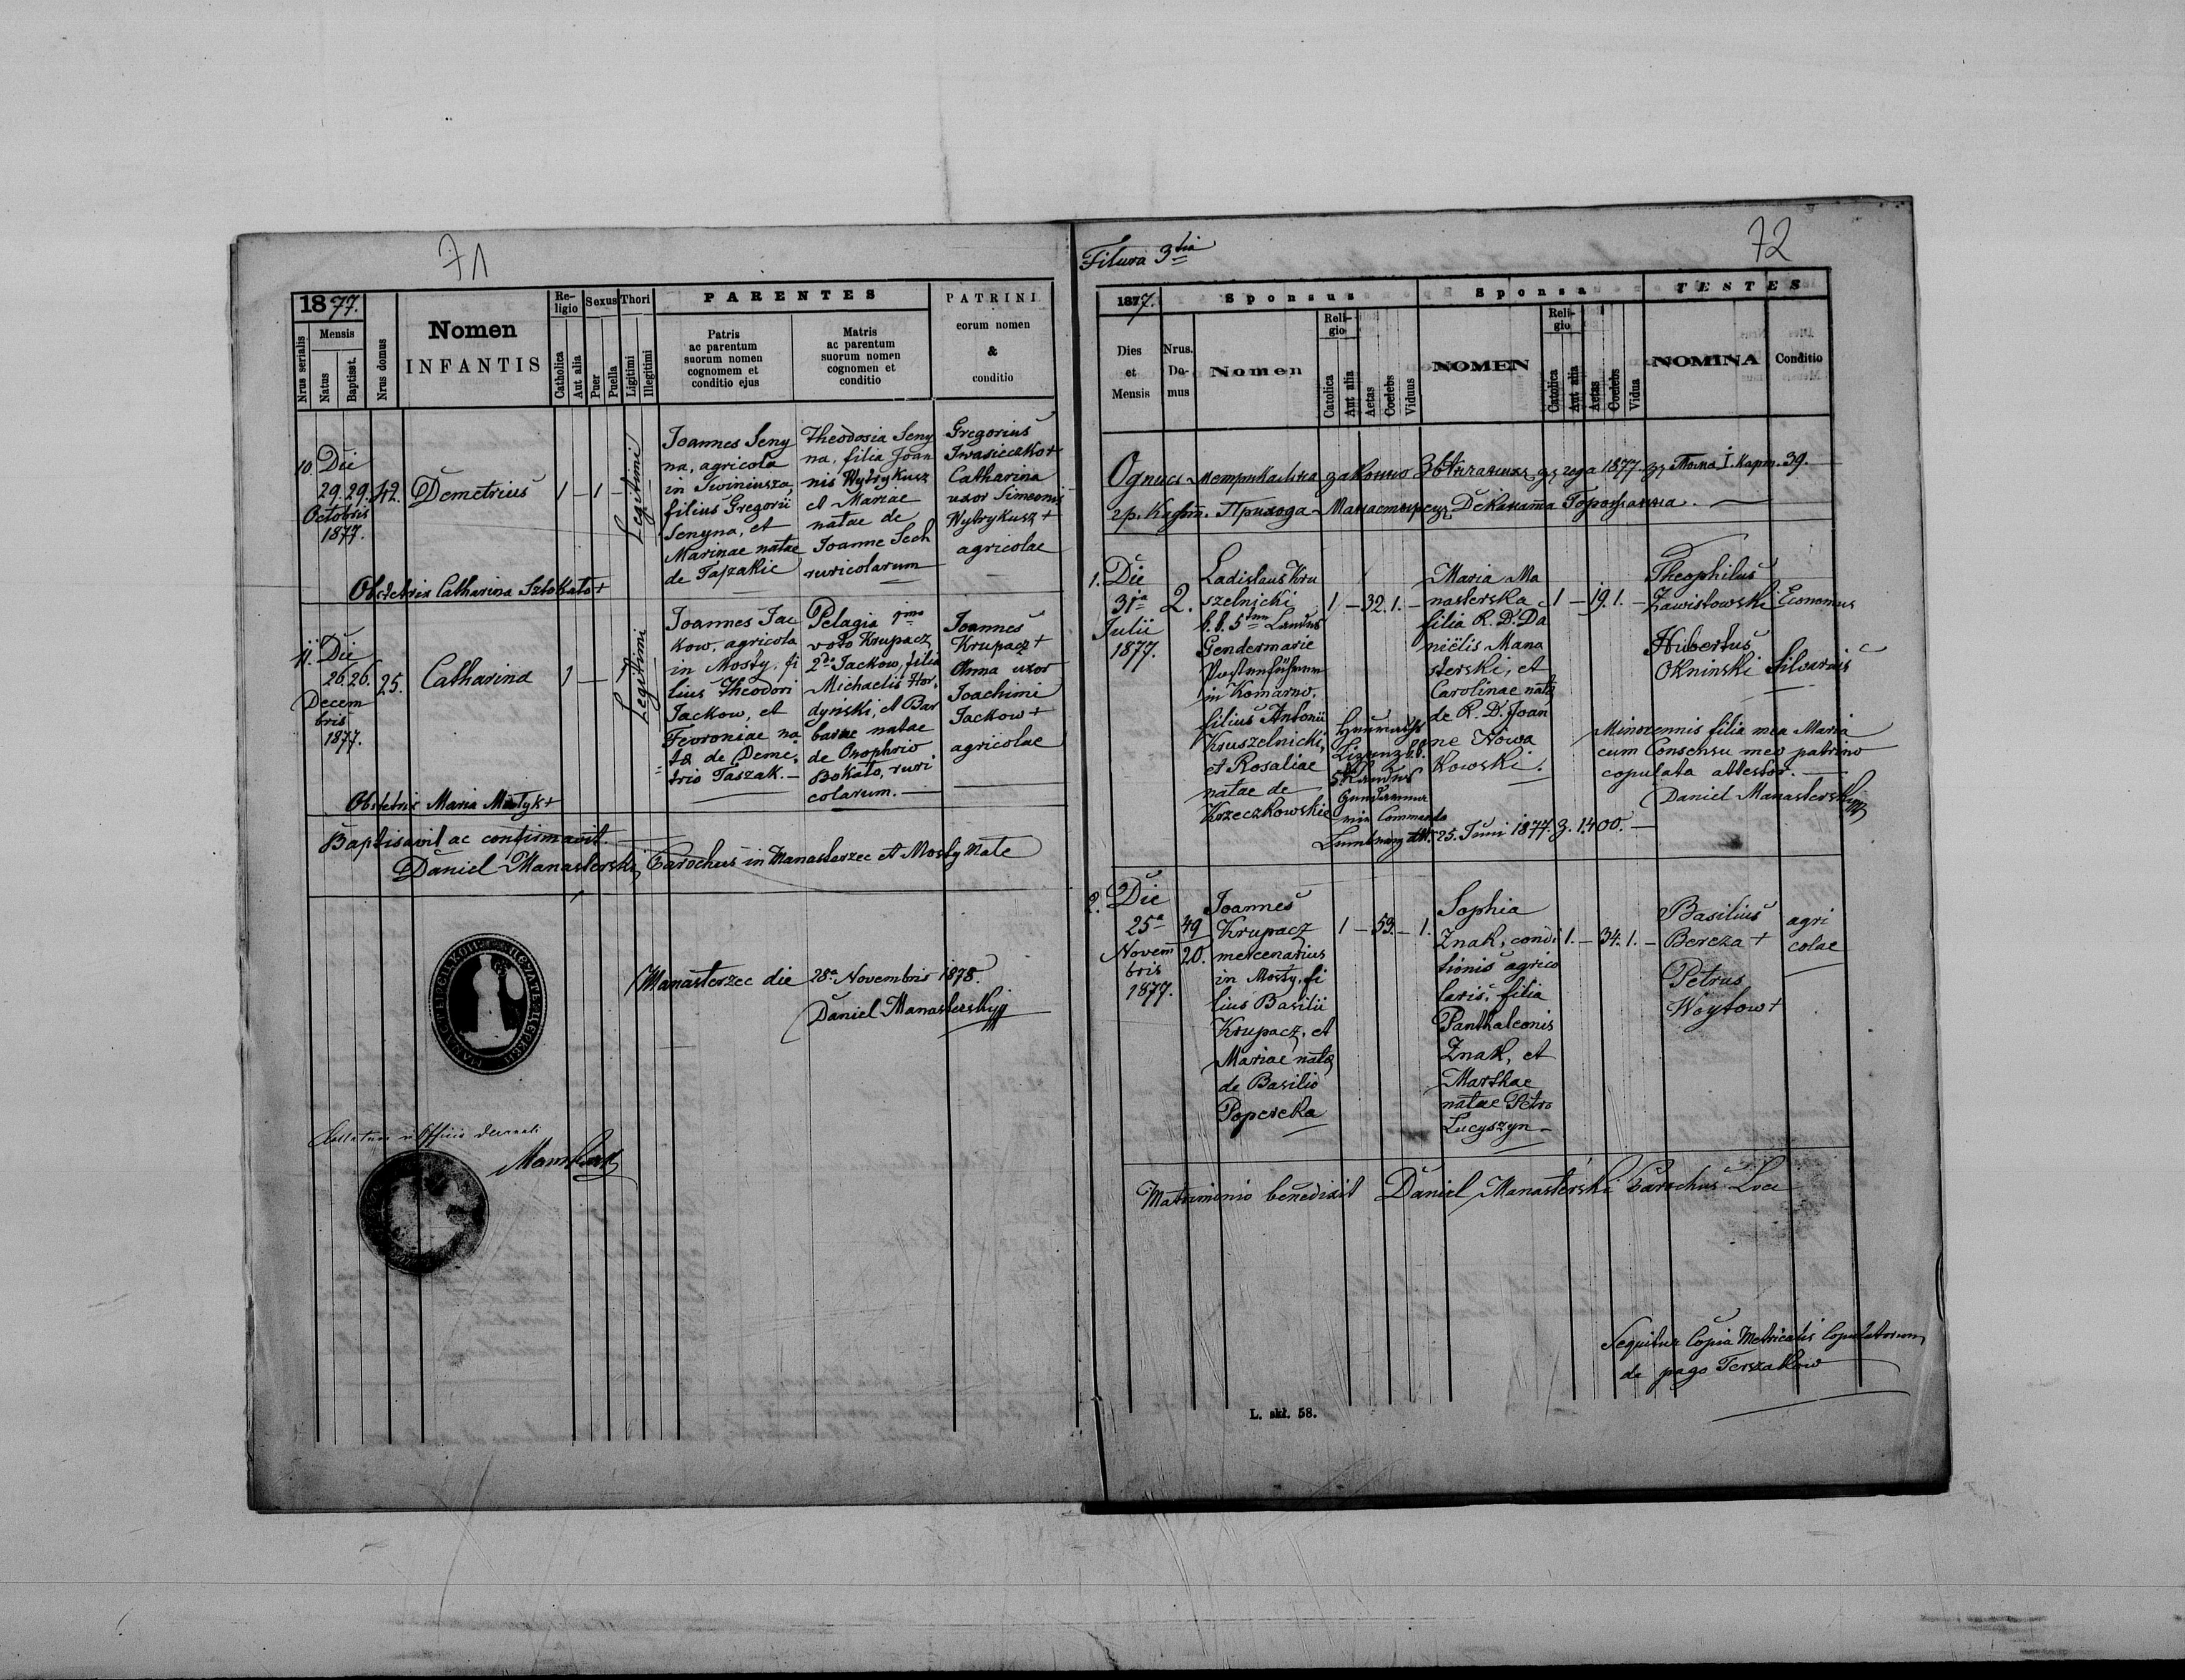 71
1877.
Nrus serialis
Mensis
Natus
Baptisat.
Nrus domus
Nomen
INFANTIS
Re-
ligio
Catholica
Aut alia
Sexus
Puer
Puella
Thori
Ligitimi
Illegitimi
PARENTES
Patris
ac parentum
suorum nomen
cognomem et
conditio ejus
Matris
ac parentum
suorum nomen
cognomen et
conditio
PATRINI
eorum nomen
&
conditio
10. Die
29. 29. 42.
Octobris
1877.
Demetrius
1 – 1 –
Legitimi
Joannes Seny
na, agricola
in Swiniusza,
filius Gregorii
Senyna, et
Marinae natae
de Taszakie
Theodosia Seny
na, filia Joan
nis Wytrykusz
et Mariae
natae de
Joanne Sech
ruricolarum
Gregorius
Iwasieczko +
Catharina
uxor Simeonis
Wytrykusz +
agricolae
Obstetrix Catharina Sztokato +
11. Die
26. 26. 25.
Decem
bris
1877.
Catharina
1 – – 1
Legitimi
Joannes Jac
kow, agricola
in Mosty, fi
lius Theodori
Jackow, et
Feoroniae na
ta de Deme
trio Taszak. –
Pelagia 1mo
voto Krupacz
2do Jackow, filia
Michaelis Hor
dynski, et Bar
barae natae
de Onophrio
Bokato, ruri
colarum. –
Joannes
Krupacz +
Anna uxor
Joachimi
Jackow +
agricolae
Obstetrix Maria Mostyk +
Baptisavit ac confirmavit. –
Daniel Manasterski, Parochus in Manasterzec et Mosty Male
Manasterzec die 28a Novembris 1878.
Daniel Manasterski
Collatum in Officio decanali
72
Filura 3tia
1877.
Sponsus
Sponsa
TESTES
Dies
et
Mensis
Nrus.
Do-
mus
Nomen
Reli-
gio
Catolica
Aut alia
Aetas
Coelebs
Viduus
NOMEN
Reli-
gio
Catolica
Aut alia
Aetas
Coelebs
Vidua
NOMINA
Conditio
1877. Тома I. Карт. 39.
гр. Прихода Деканата
1. Die
31a
Julii
1877.
2.
Ladislaus Kru
szelnicki
Gendarmerie
in Komarno,
filius Antonii
Kruszelnicki,
et Rosaliae
natae de
Krzeczkowskie
1 – 32. 1. –
Commando
25. Juni 1877. Z. 1400. –
Maria Ma
nasterska
filia R. D. Da
niëlis Mana
sterski, et
Carolinae nata
de R. D. Joan
ne Nowa
kowski.
1 – 19. 1. –
Theophilus
Zawistowski Economus
Hubertus
Okninski Silvarius
Minorennis filia mea Maria
cum Consensu meo patrino
copulata attestor. –
Daniel Manasterski
2. Die
25a
Novem
bris
1877.
49
20.
Joannes
Krupacz
mercenarius
in Mosty, fi
lius Basilii
Krupacz, et
Mariae nata
de Basilio
Popereka
1 – 53. – 1.
Sophia
Znak, condi
tionis agrico
laris, filia
Panthaleonis
Znak, et
Marthae
natae Petro
Lucyszyn –
1. – 34. 1. –
Basilius
Bereza +
Petrus
Woytow +
agri
colae
Matrimonio benedixit Daniel Manasterski Parochus Loci
Sequitur Copia Metricalis Copulatorum
de pago Terszakow
L. skł. 58.